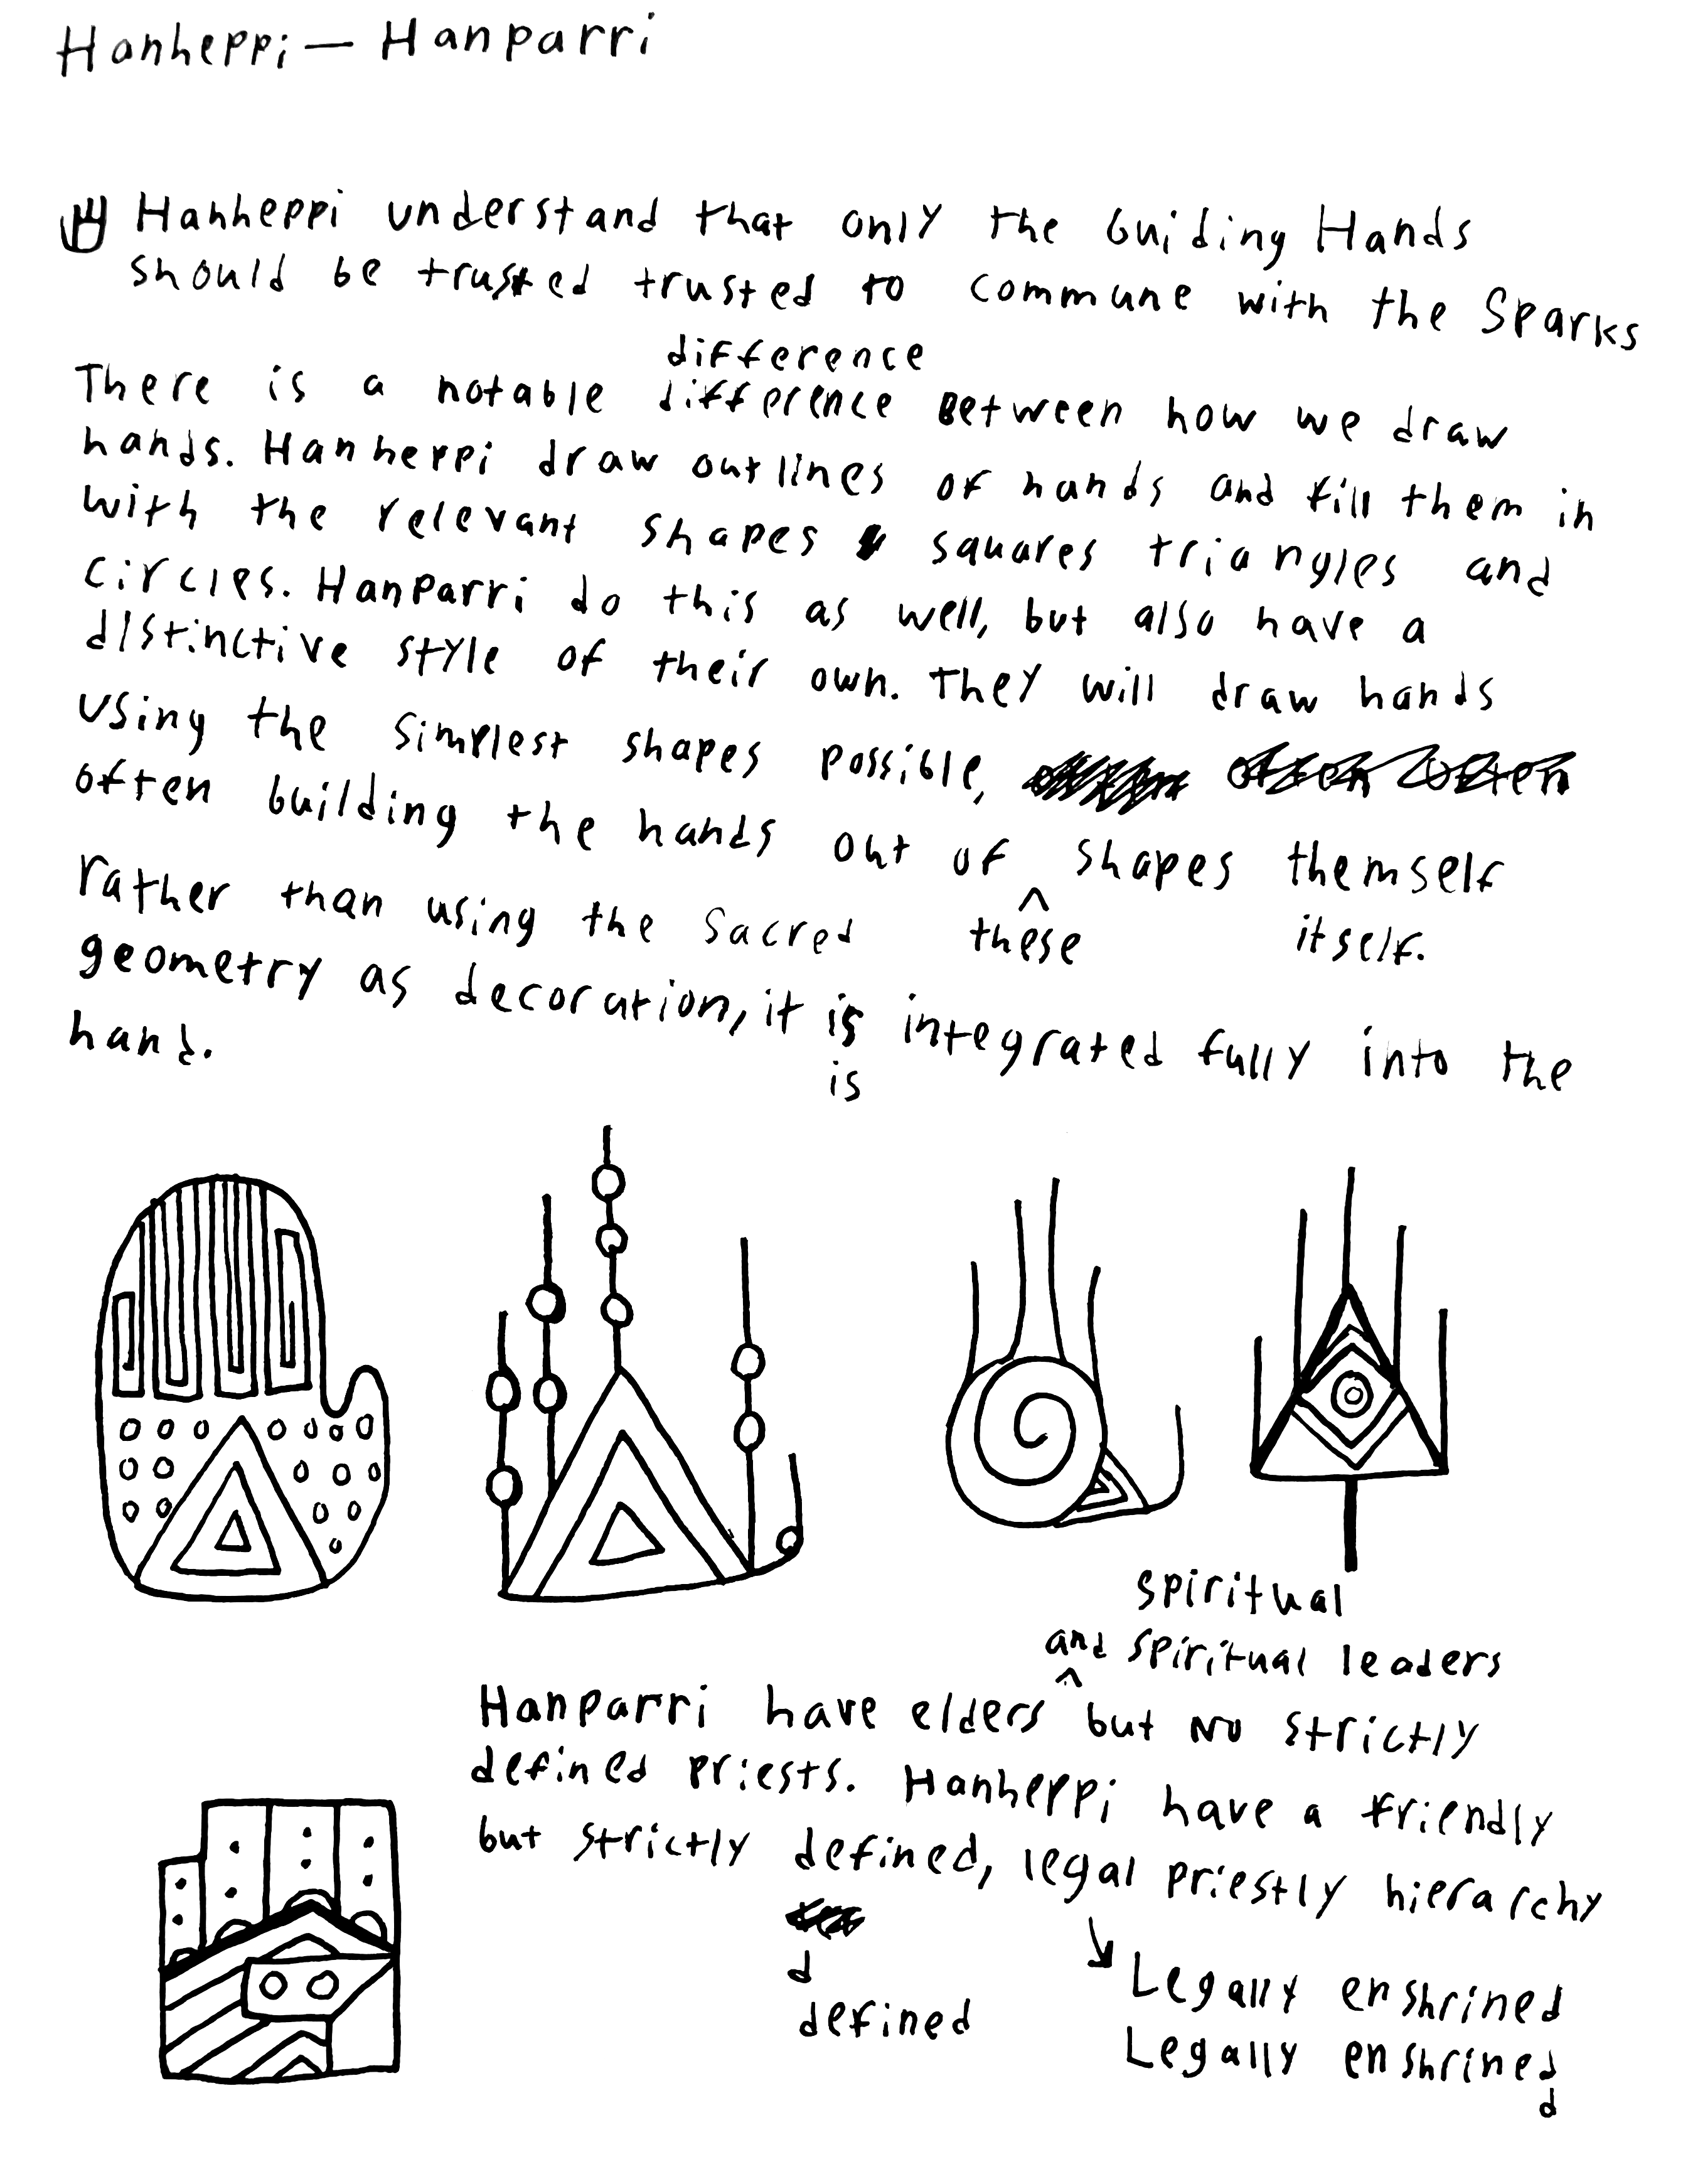 Hanheppi — Hanparri
Hanheppi understand that only the Guiding Hands
should be trusted trusted to commune with the Sparks
difference
There is a notable difference Between how we draw
hands. Hanheppi draw outlines of hands and fill them in
with the relevant shapes squares triangles and
circles. Hanparri do this as well, but also have a
distinctive style of their own. They will draw hands
using the simplest shapes possible,
often building the hands out of ^ shapes themself
these itself.
rather than using the sacred
geometry as decoration, it is integrated fully into the
is
hand.
spiritual
and spiritual leaders
Hanparri have elders ^ but no strictly
defined priests. Hanheppi have a friendly
but strictly defined, legal priestly hierarchy
d
defined
Legally enshrined
Legally enshrined
d